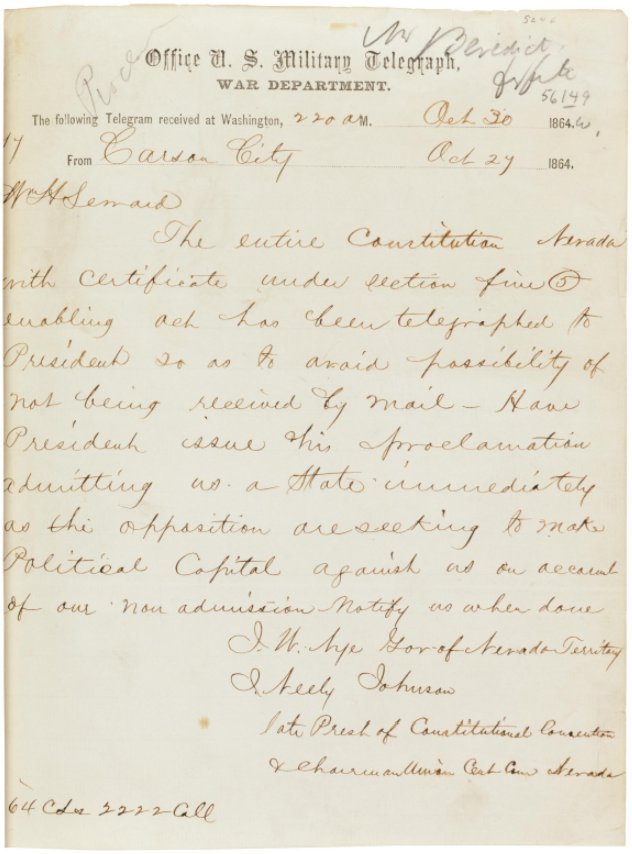 5240
Mr Benedict
Office U. S. Military Telegraph,
for file
WAR DEPARTMENT.
56149
The following Telegram received at Washington, 220 a M. Oct 30 1864.
17
From Carson City Oct 29 1864.
Wm H Seward
The entire Constitution Nevada
with certificate under section five (5)
enabling act has been telegraphed to
President so as to avoid possibility of
not being received by mail – Have
President issue his proclamation
admitting us a State immediately
as the opposition are seeking to make
Political Capital against us on account
of our non admission Notify us when done
J. W. Nye Gov of Nevada Territory
J. Neely Johnson
late Prest of Constitutional Convention
& Chairman Union Cent Com Nevada
64 2222 Coll